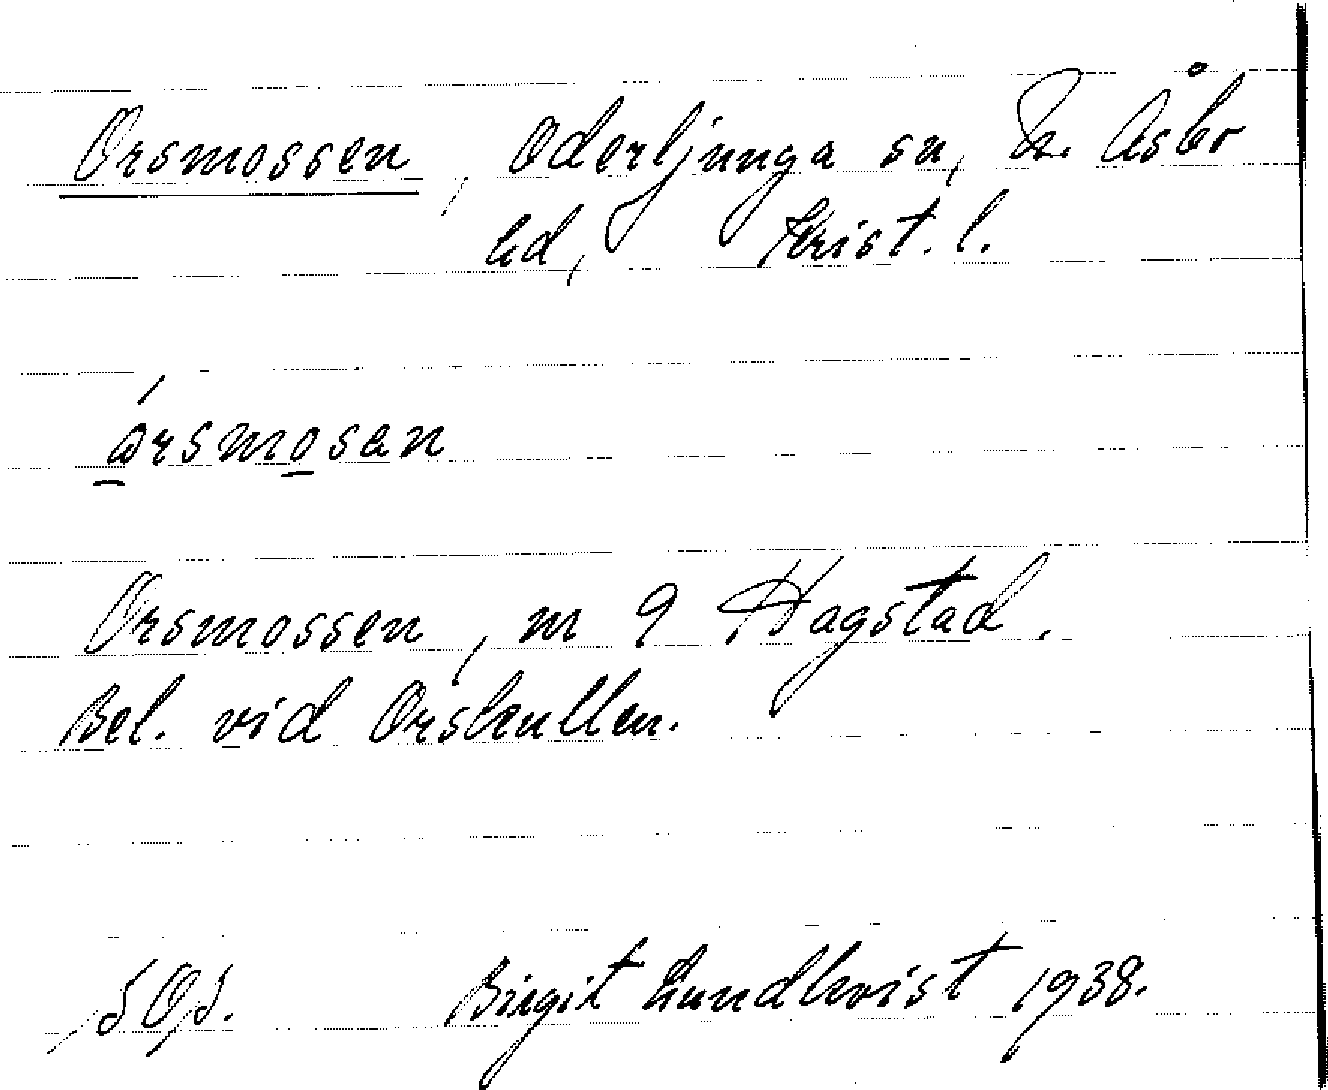 Orsmossen, Oderljunga sn, N. Åsbo
hd, Krist. l.
ársmosan
Orsmossen, m 9 Hagstad.
Bel. vid Orskullen.
SOJ. Birgit Lundkvist 1938.